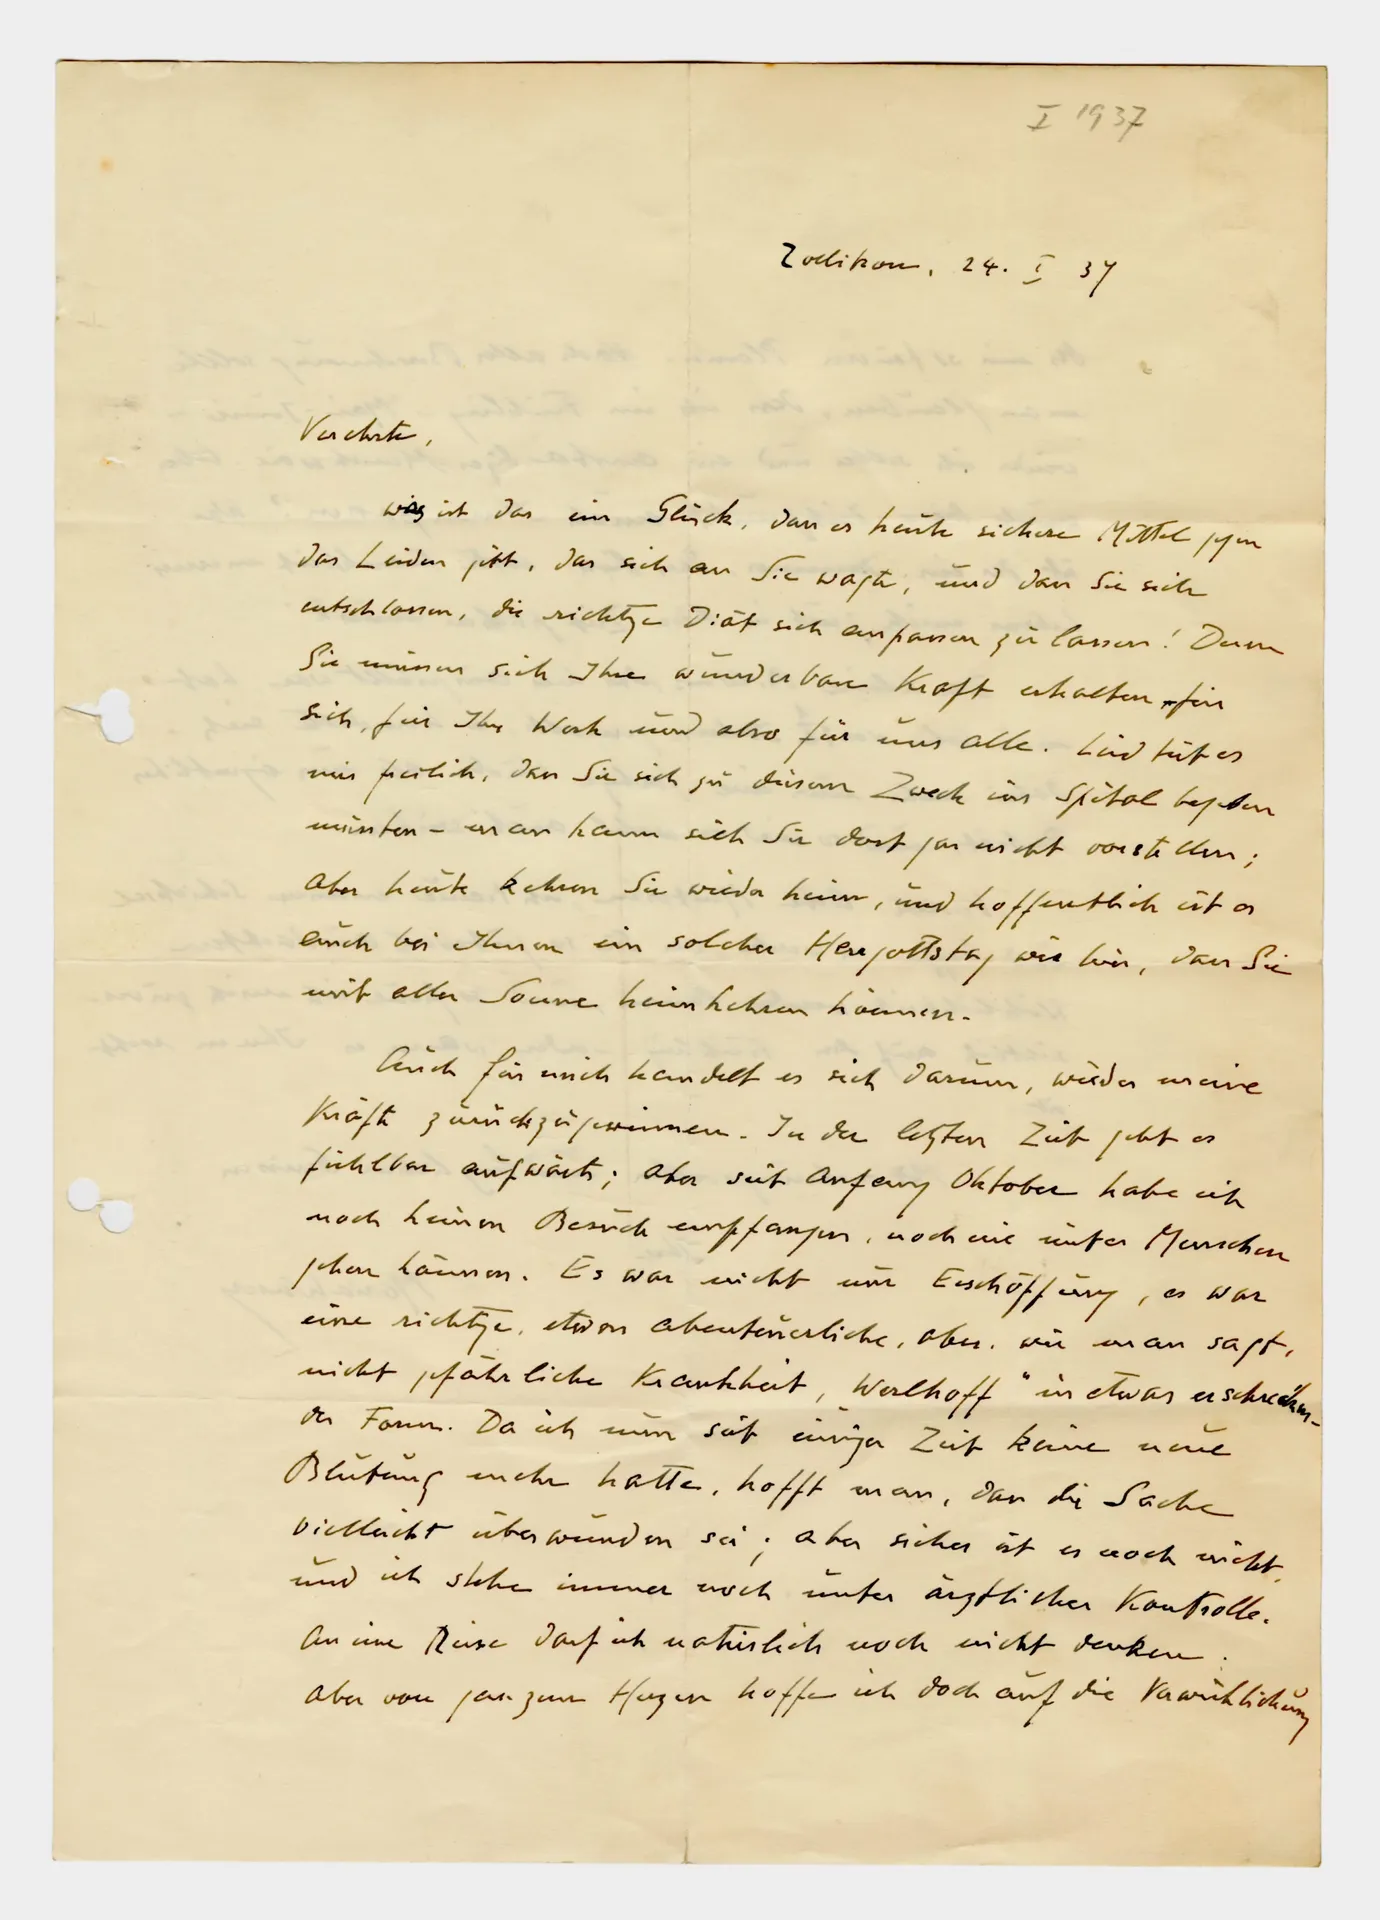 I 1937
Zollikon, 24. I 37
Verehrte,
was ist das ein Glück, dass es heute sichere Mittel gegen
das Leiden gibt, das sich an Sie wagte, und dass Sie sich
entschlossen, die richtige Diät sich anpassen zu lassen! Denn
Sie müssen sich Ihre wunderbare Kraft erhalten für
sich, für Ihr Werk und also für uns alle. Leid tut es
mir freilich, dass Sie sich zu diesem Zweck ins Spital begeben
mussten – man kann sich Sie dort gar nicht vorstellen;
aber heute kehren Sie wieder heim, und hoffentlich ist es
auch bei Ihnen ein solcher Herrgottstag wie hier, dass Sie
mit aller Sonne heimkehren können.
Auch für mich handelt es sich darum, wieder meine
Kräfte zurückzugewinnen. In der letzten Zeit geht es
fühlbar aufwärts; aber seit Anfang Oktober habe ich
noch keinen Besuch empfangen, noch nie unter Menschen
gehen können. Es war nicht nur Erschöpfung, es war
eine richtige, etwas abenteuerliche, aber, wie man sagt,
nicht gefährliche Krankheit, „Werlhoff" in etwas erschrecken-
der Form. Da ich nun seit einiger Zeit keine neue
Blutung mehr hatte, hofft man, dass die Sache
vielleicht überwunden sei; aber sicher ist es noch nicht,
und ich stehe immer noch unter ärztlicher Kontrolle.
An eine Reise darf ich natürlich noch nicht denken.
Aber von ganzem Herzen hoffe ich doch auf die Verwirklichung